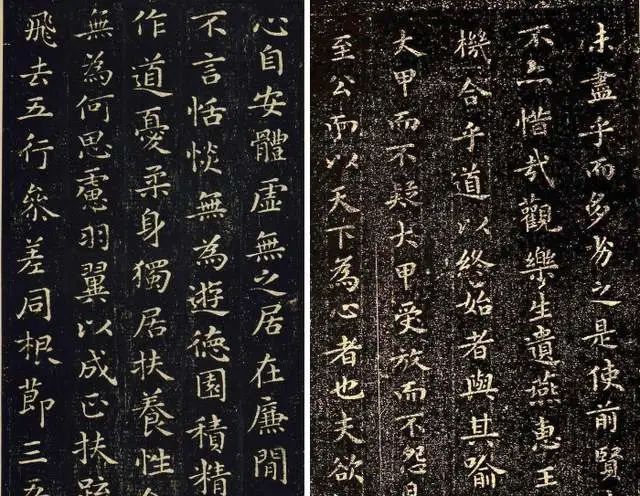 心自安體虛無之居在廉間
不言恬惔無為遊德園積精
作道憂柔身獨居扶養性
無為何思慮羽翼以成正扶
飛去五行參差同根節三五
未盡乎而多劣之是使前賢
不惜哉觀樂生遺燕惠王
機合乎道以終始者與其喻
大甲而不疑大甲受放而不怨是
至公而以天下為心者也夫欲